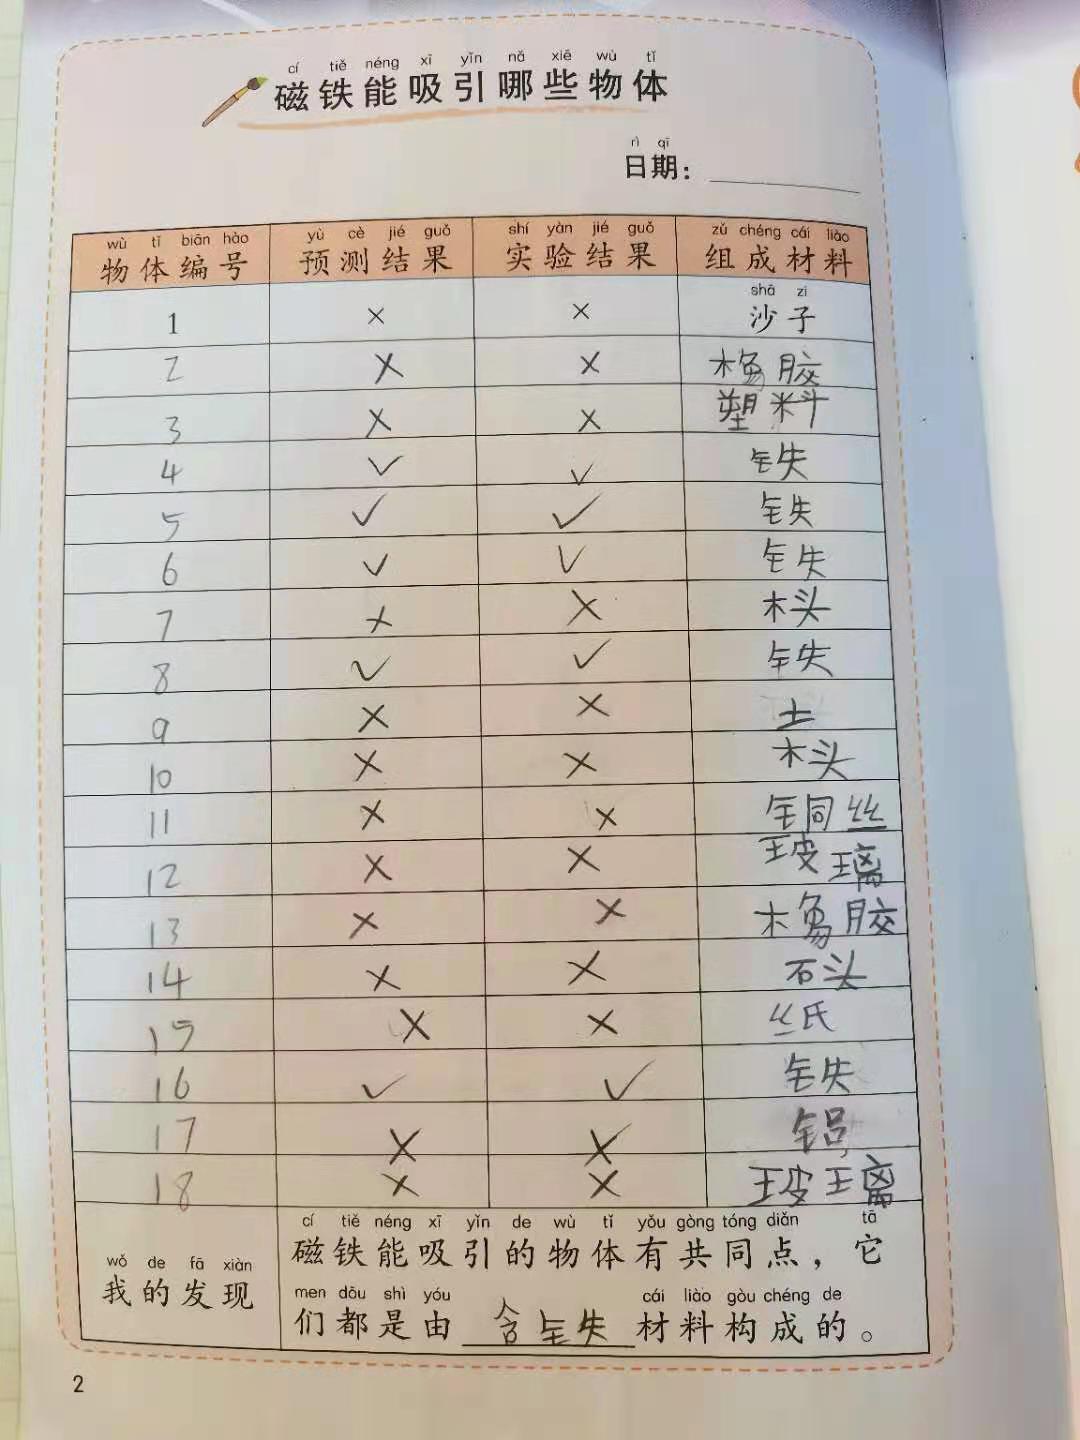 cí tiě néng xī yǐn nǎ xiē wù tǐ
磁铁能吸引哪些物体
rì qī
日期：
wù tǐ biān hào yù cè jié guǒ shí yàn jié guǒ zǔ chéng cái liào
物体编号 预测结果 实验结果 组成材料
shā zi
1 × × 沙子
2 × × 橡胶
3 × × 塑料
4 ✓ ✓ 铁
5 ✓ ✓ 铁
6 ✓ ✓ 铁
7 × × 木头
8 ✓ ✓ 铁
9 × × 土
10 × × 木头
11 × × 铜丝
12 × × 玻璃
13 × × 橡胶
14 × × 石头
15 × × 纸
16 ✓ ✓ 铁
17 × × 铝
18 × × 玻璃
wǒ de fā xiàn
我的发现
cí tiě néng xī yǐn de wù tǐ yǒu gòng tóng diǎn tā
磁铁能吸引的物体有共同点，它
men dōu shì yóu cái liào gòu chéng de
们都是由 含铁 材料构成的。
2